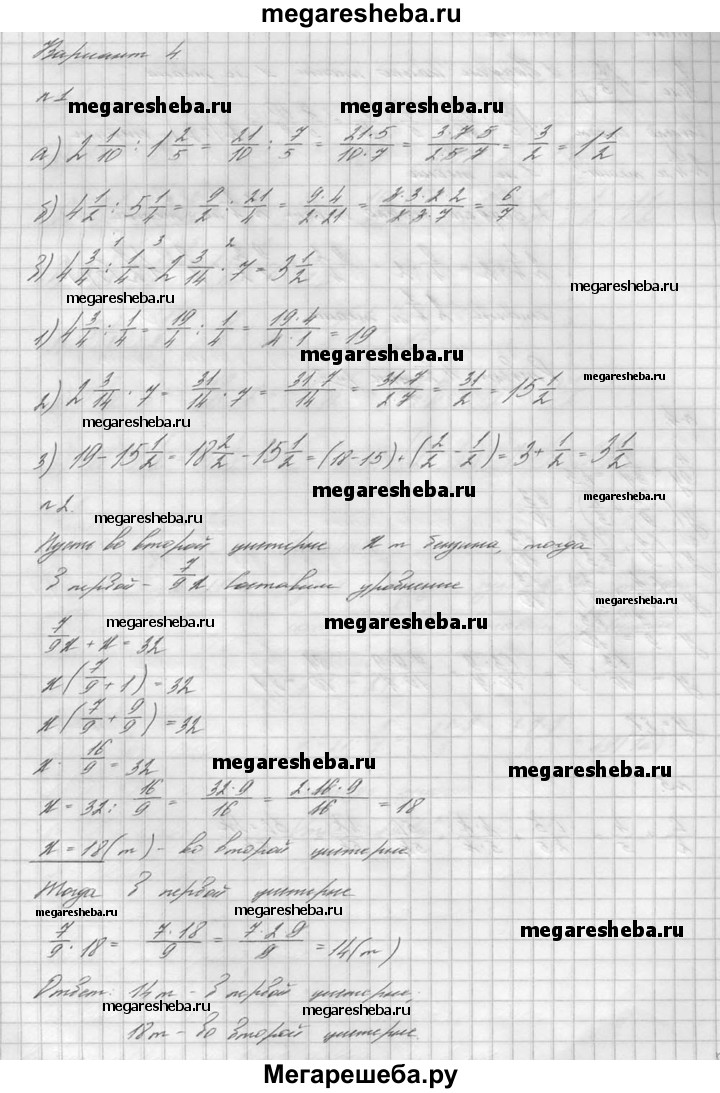 megaresheba.ru
Вариант 4
№1
megaresheba.ru megaresheba.ru
а) 2 1/10 : 1 2/5 = 21/10 : 7/5 = 21·5/10·7 = 3·7·5/2·5·7 = 3/2 = 1 1/2
б) 4 1/2 : 5 1/4 = 9/2 : 21/4 = 9·4/2·21 = 3·3·2·2/2·3·7 = 6/7
в) 4 3/4 : 1/4 - 2 3/14 · 7 = 3 1/2
megaresheba.ru megaresheba.ru
1) 4 3/4 : 1/4 = 19/4 : 1/4 = 19·4/4·1 = 19
megaresheba.ru
2) 2 3/14 · 7 = 31/14 · 7 = 31·7/14 = 31·7/2·7 = 31/2 = 15 1/2
megaresheba.ru
megaresheba.ru
3) 19 - 15 1/2 = 18 2/2 - 15 1/2 = (18-15) + (2/2 - 1/2) = 3 + 1/2 = 3 1/2
megaresheba.ru
№2.
megaresheba.ru
Пусть во второй цистерне x т бензина, тогда
В первой - 7/9 x. Составим уравнение
megaresheba.ru
megaresheba.ru megaresheba.ru
7/9 x + x = 32
x (7/9 + 1) = 32
x (7/9 + 9/9) = 32
x · 16/9 = 32
megaresheba.ru megaresheba.ru
x = 32 : 16/9 = 32·9/16 = 2·16·9/16 = 18
x = 18 (т) - во второй цистерне
Тогда в первой цистерне
megaresheba.ru megaresheba.ru
megaresheba.ru
7/9 · 18 = 7·18/9 = 7·2·9/9 = 14 (т)
Ответ: 14т - в первой цистерне,
megaresheba.ru
18т - во второй цистерне
Мегарешеба.ру